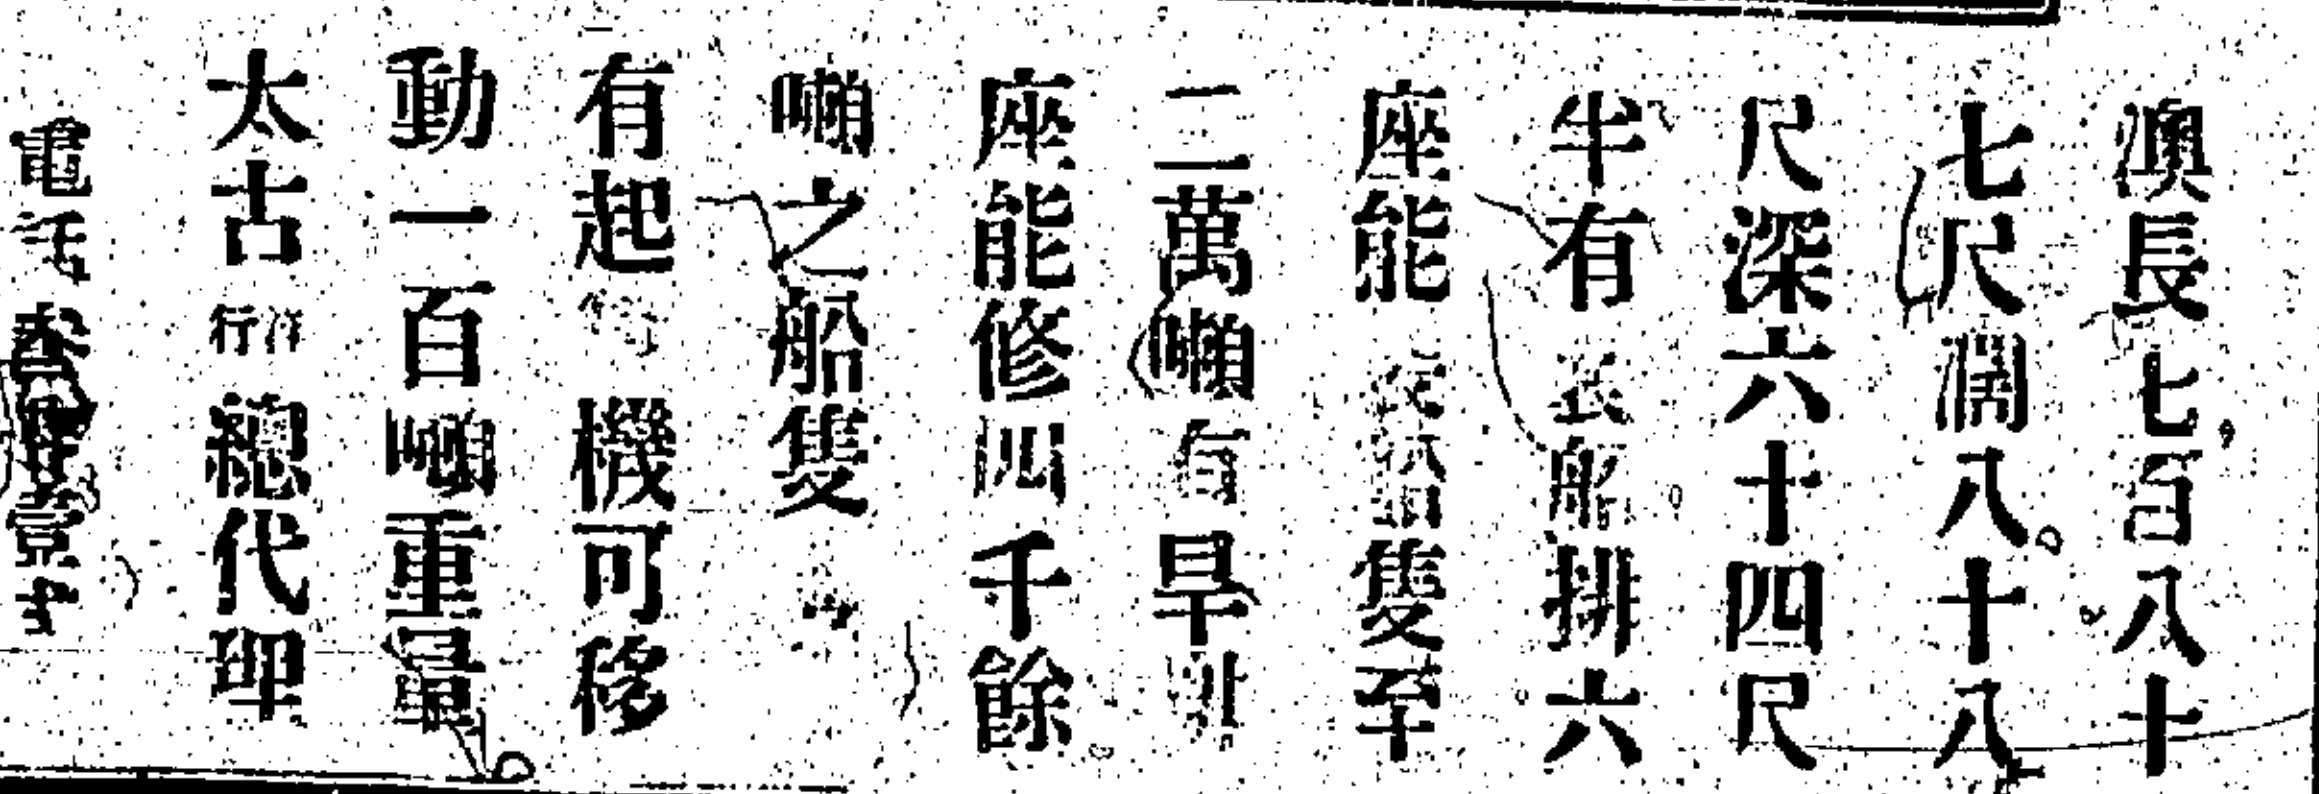 澳長七百八十
七尺濶八十八
尺深六十四尺
半有裝船排六
座能 船隻至
二萬噸有旱
座能修四千餘
噸之船隻
有起 機可移
動一百噸重量
太古洋行總代理
電話